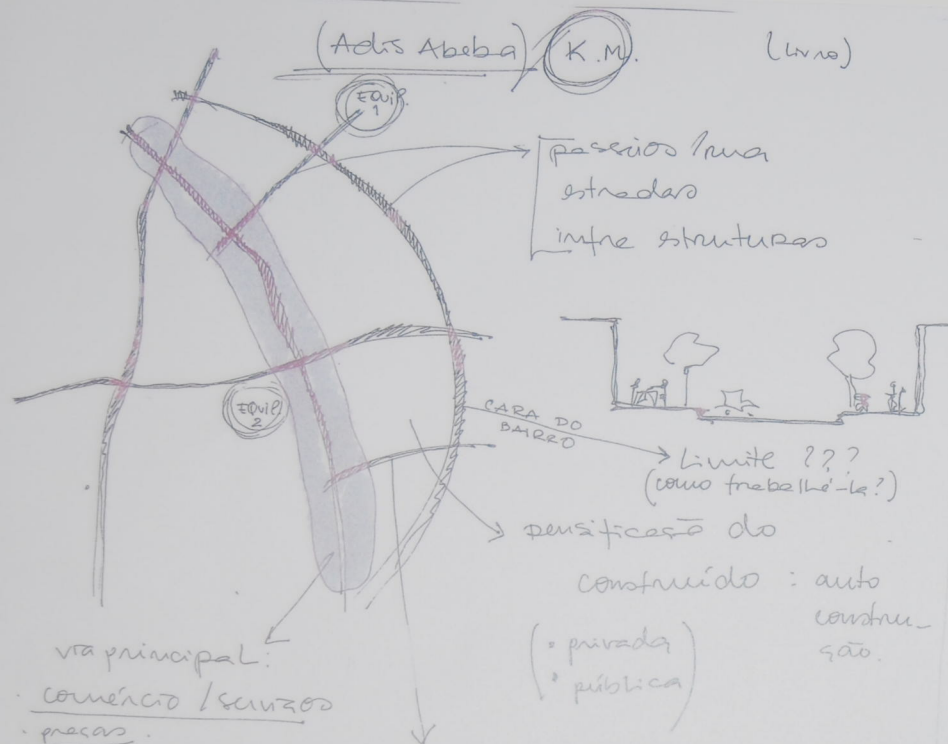 (Adis Abeba) K.M. (Livro)
EQUIP. 1
passeios / rua
estradas
infra estruturas
EQUIP. 2
CARA DO
BAIRRO
Limite ???
(como trabalhá-la?)
densificação do
construído : auto
constru-
ção.
( • privada
• pública )
via principal:
comércio / serviços
. praças.